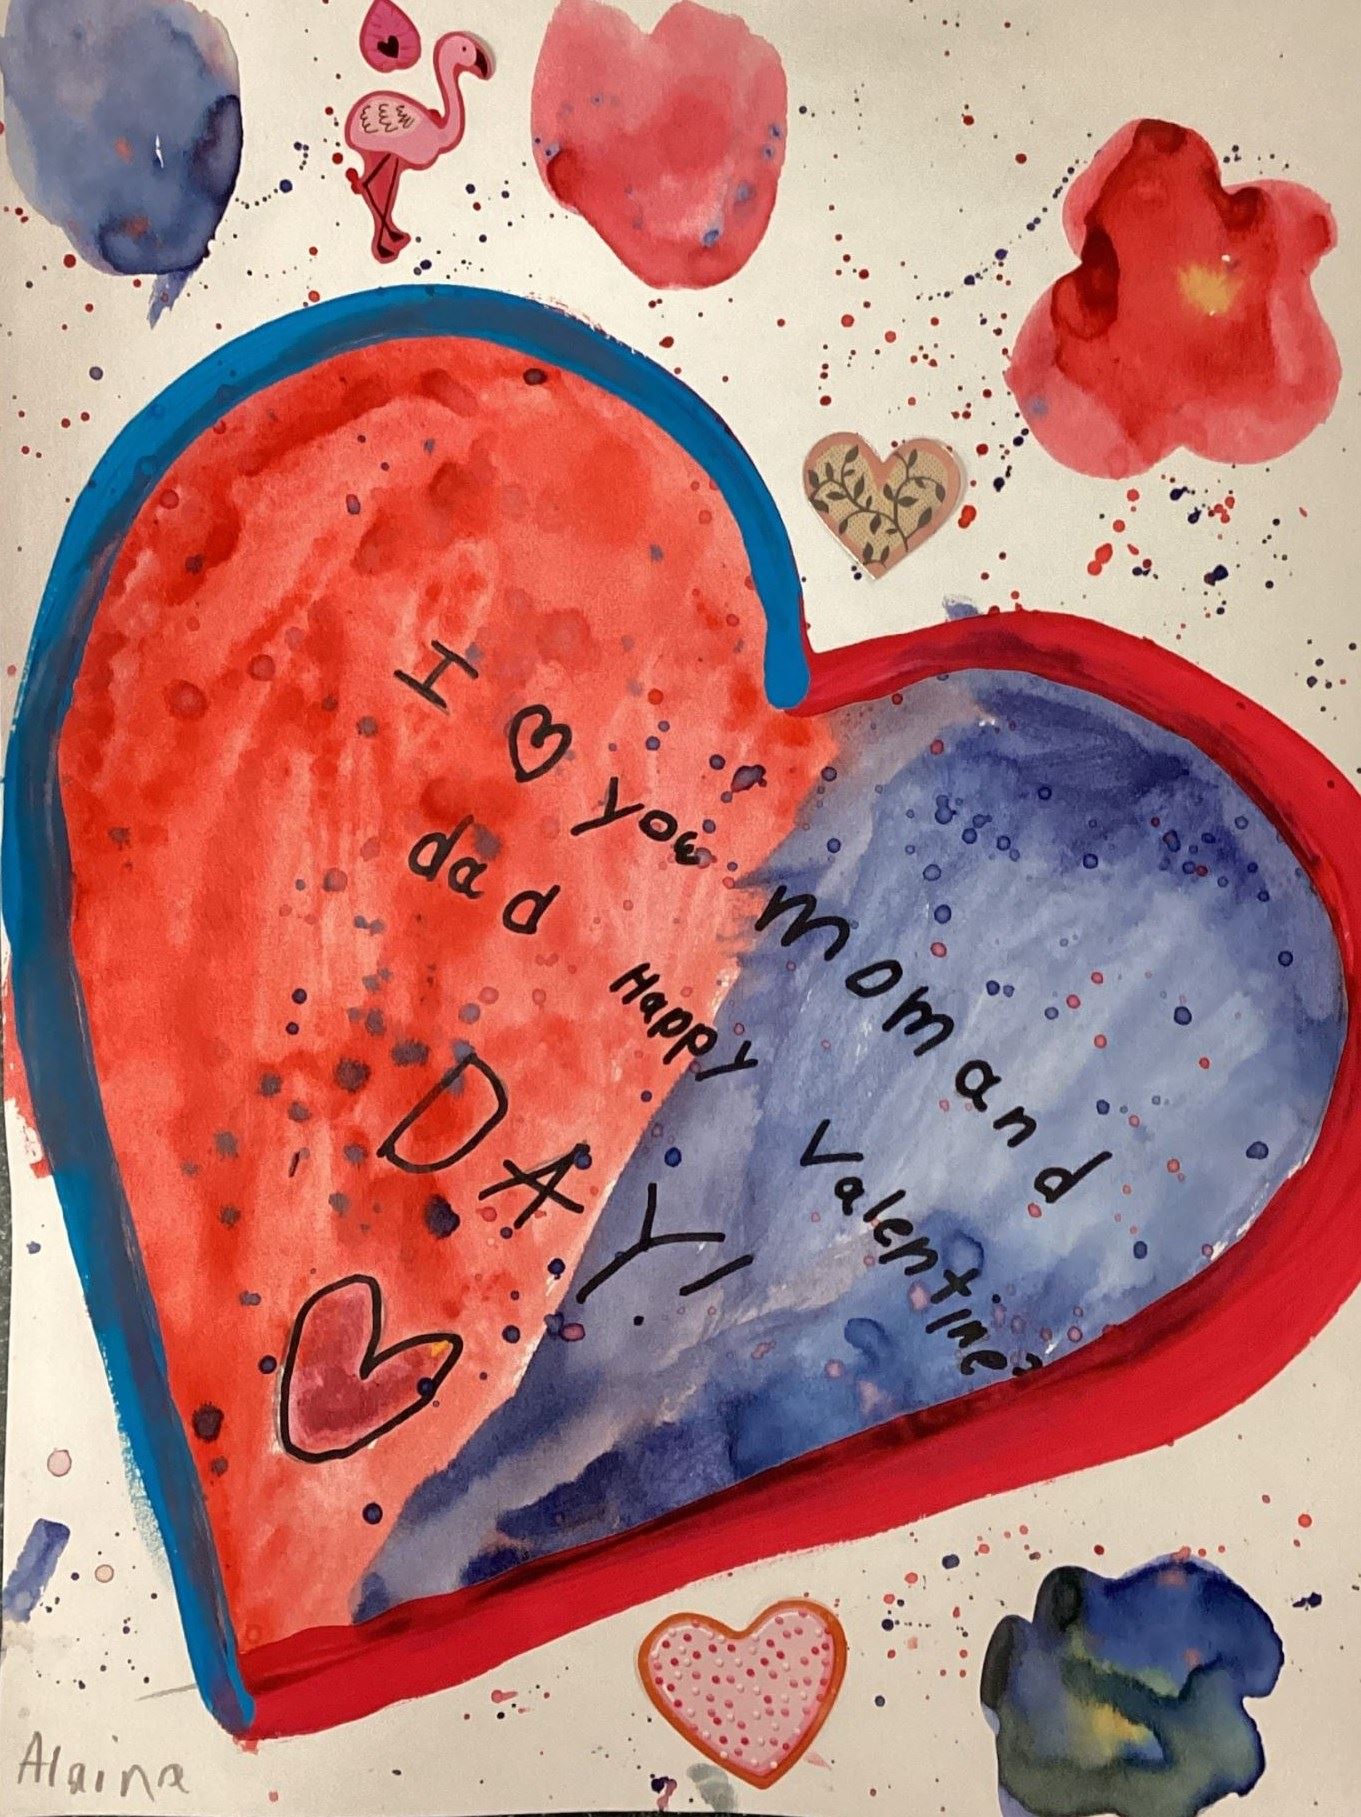 I ♡ you mom and
dad Happy Valentines
DAY!
Alaina